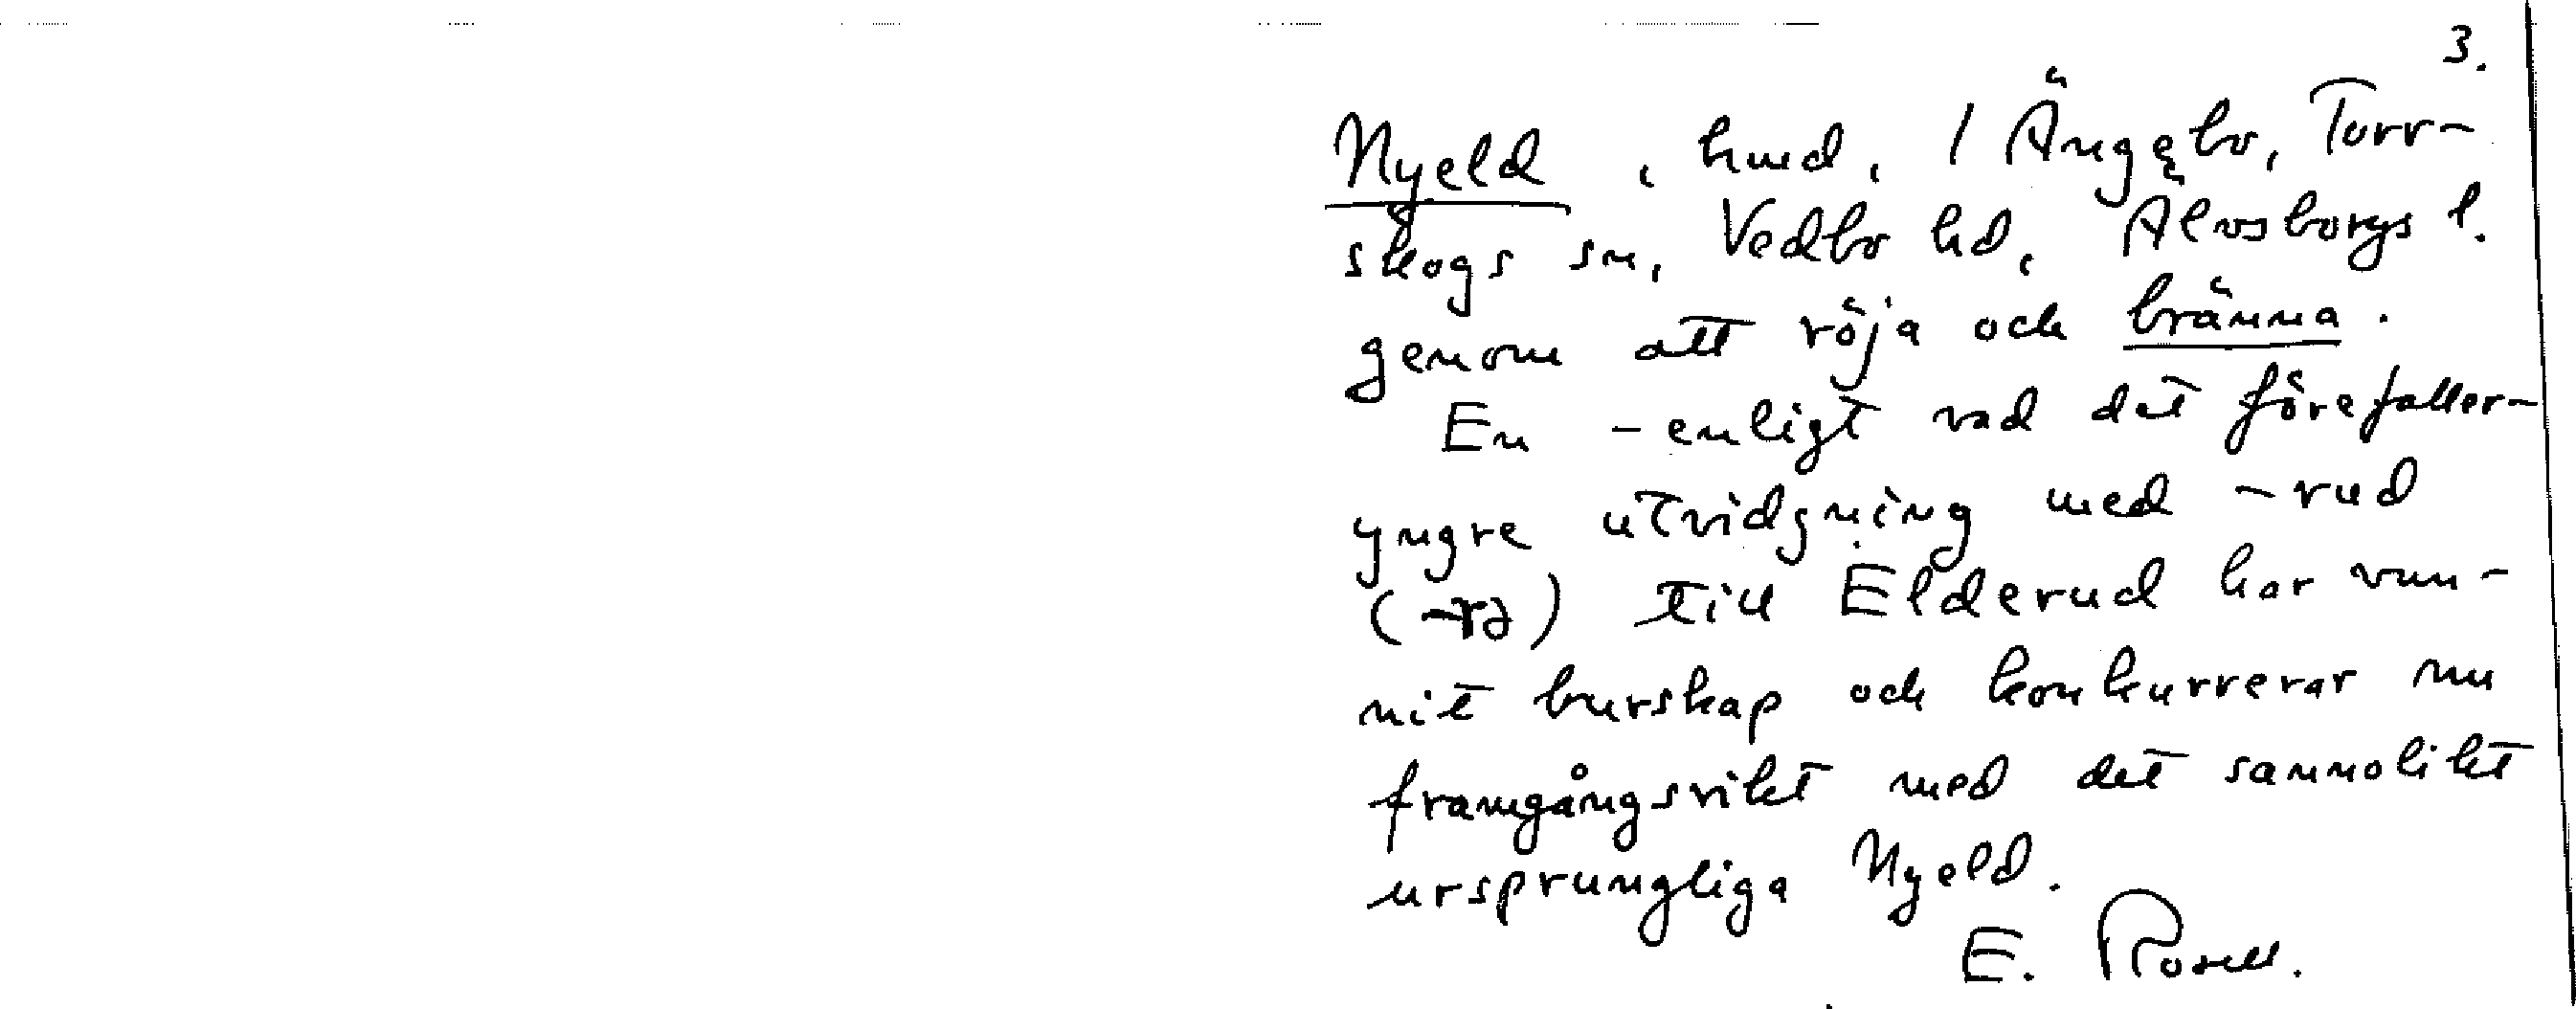 3.
Nyeld, hmd, 1 Ängebo, Torr-
skogs sn, Vedbo hd, Älvsborgs l.
genom att röja och bränna.
En - enligt vad det förefaller -
yngre utvidgning med -rud
(-rə) till Elderud har vun-
nit burskap och konkurrerar nu
framgångsrikt med det sannolikt
ursprungliga Nyeld.
E. Rosell.